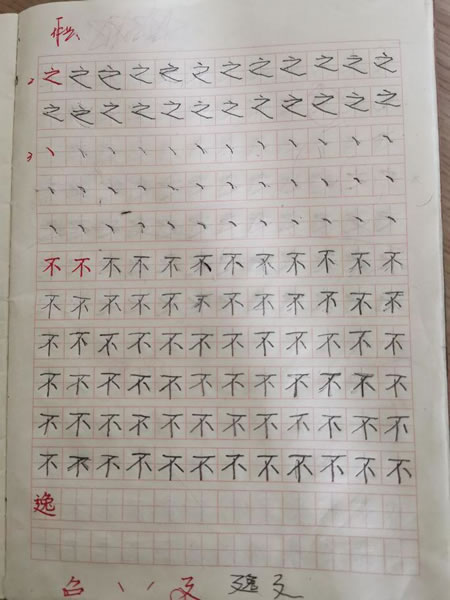 2 之之之之之之之之之之之之
之之之之之之之之之之之之
3 丶丶丶丶丶丶丶丶丶丶丶丶
丶丶丶丶丶丶丶丶丶丶丶丶
丶丶丶丶丶丶丶丶丶丶丶丶
不不不不不不不不不不不不
不不不不不不不不不不不不
不不不不不不不不不不不不
不不不不不不不不不不不不
不不不不不不不不不不不不
不不不不不不不不不不不不
逸